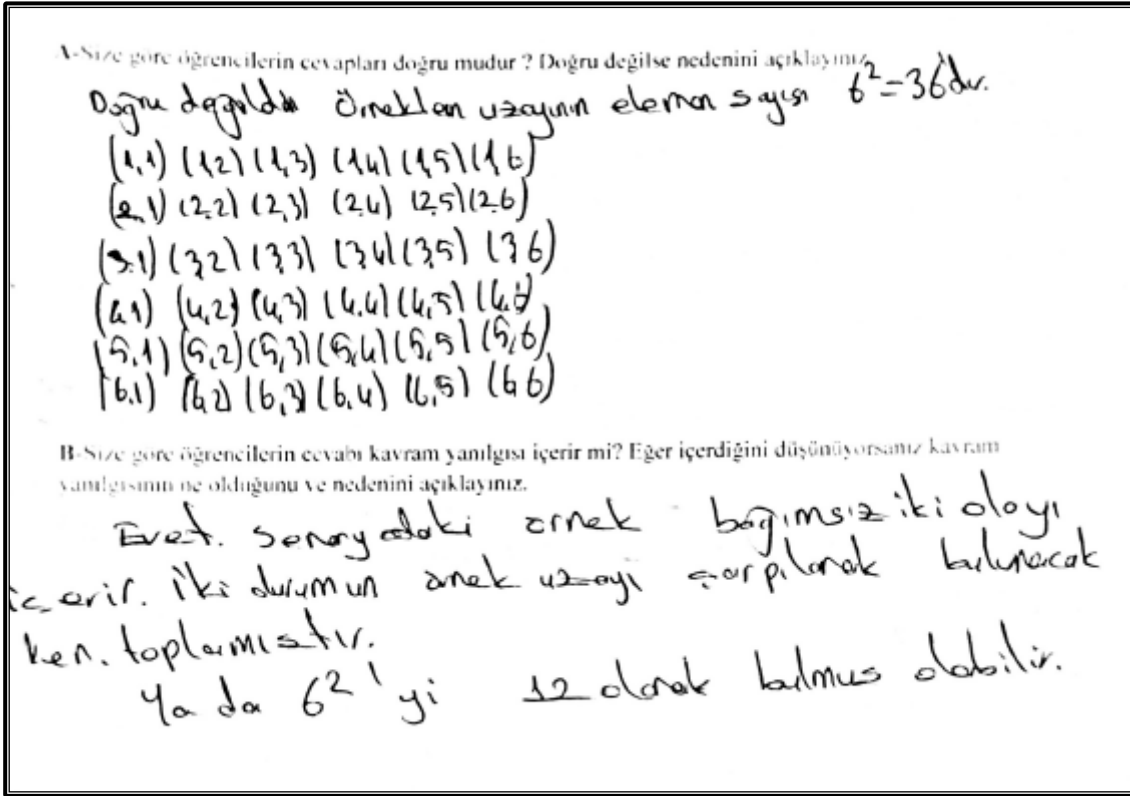 A-Size göre öğrencilerin cevapları doğru mudur ? Doğru değilse nedenini açıklayınız.
Doğru değildir Örneklem uzayının eleman sayısı 6²=36'dır.
(1,1) (1,2) (1,3) (1,4) (1,5) (1,6)
(2,1) (2,2) (2,3) (2,4) (2,5) (2,6)
(3,1) (3,2) (3,3) (3,4) (3,5) (3,6)
(4,1) (4,2) (4,3) (4,4) (4,5) (4,6)
(5,1) (5,2) (5,3) (5,4) (5,5) (5,6)
(6,1) (6,2) (6,3) (6,4) (6,5) (6,6)
B-Size göre öğrencilerin cevabı kavram yanılgısı içerir mi? Eğer içerdiğini düşünüyorsanız kavram
yanılgısının ne olduğunu ve nedenini açıklayınız.
Evet. Senaryodaki örnek bağımsız iki olayı
içerir. İki durumun örnek uzayı çarpılarak bulunacak
ken. toplamıştır.
Ya da 6²'yi 12 olarak bulmuş olabilir.